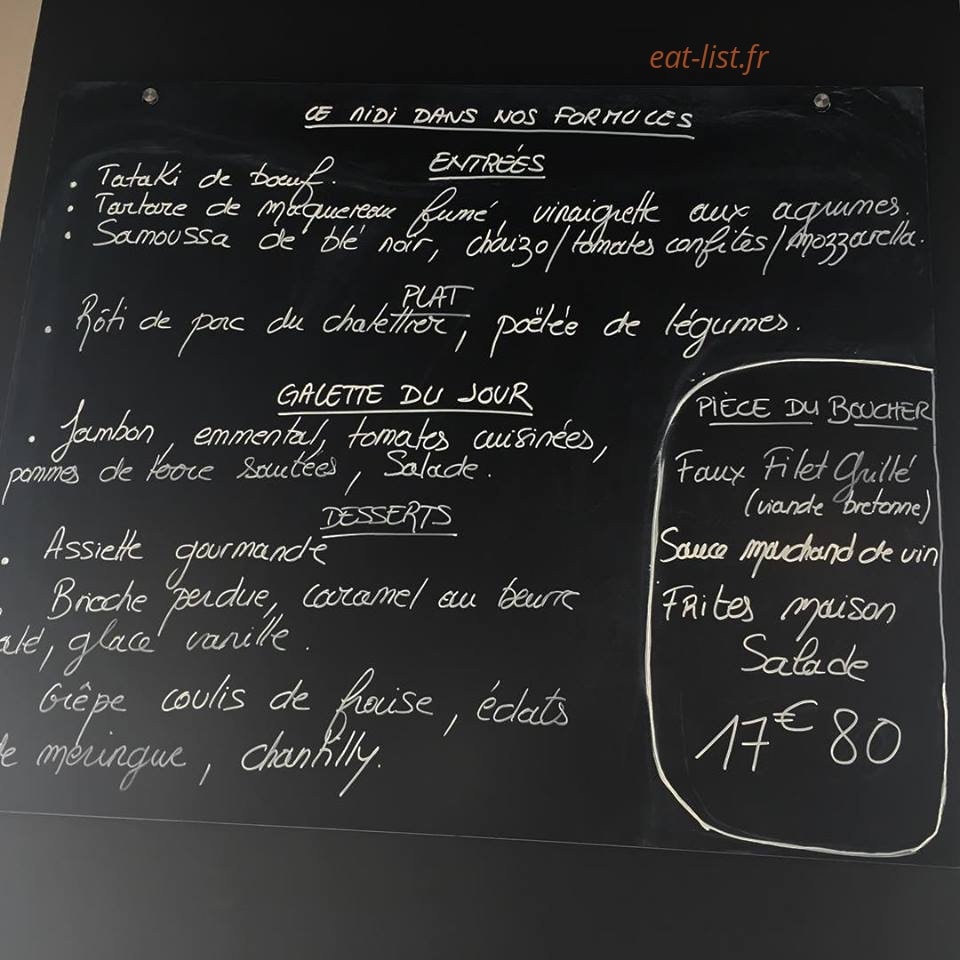 eat-list.fr
CE MIDI DANS NOS FORMULES
ENTRÉES
• Tataki de boeuf.
• Tartare de maquereau fumé, vinaigrette aux agrumes.
• Samoussa de blé noir, chorizo/tomates confites/mozzarella.
PLAT
• Rôti de porc du charcutier, poëlée de légumes.
GALETTE DU JOUR
• Jambon, emmental, tomates cuisinées,
pommes de terre sautées, Salade.
DESSERTS
• Assiette gourmande
Brioche perdue, caramel au beurre
alé, glace vanille.
Crêpe coulis de fraise, éclats
de meringue, chantilly.
PIÈCE DU BOUCHER
Faux Filet Grillé
(viande bretonne)
Sauce marchand de vin
Frites maison
Salade
17€80